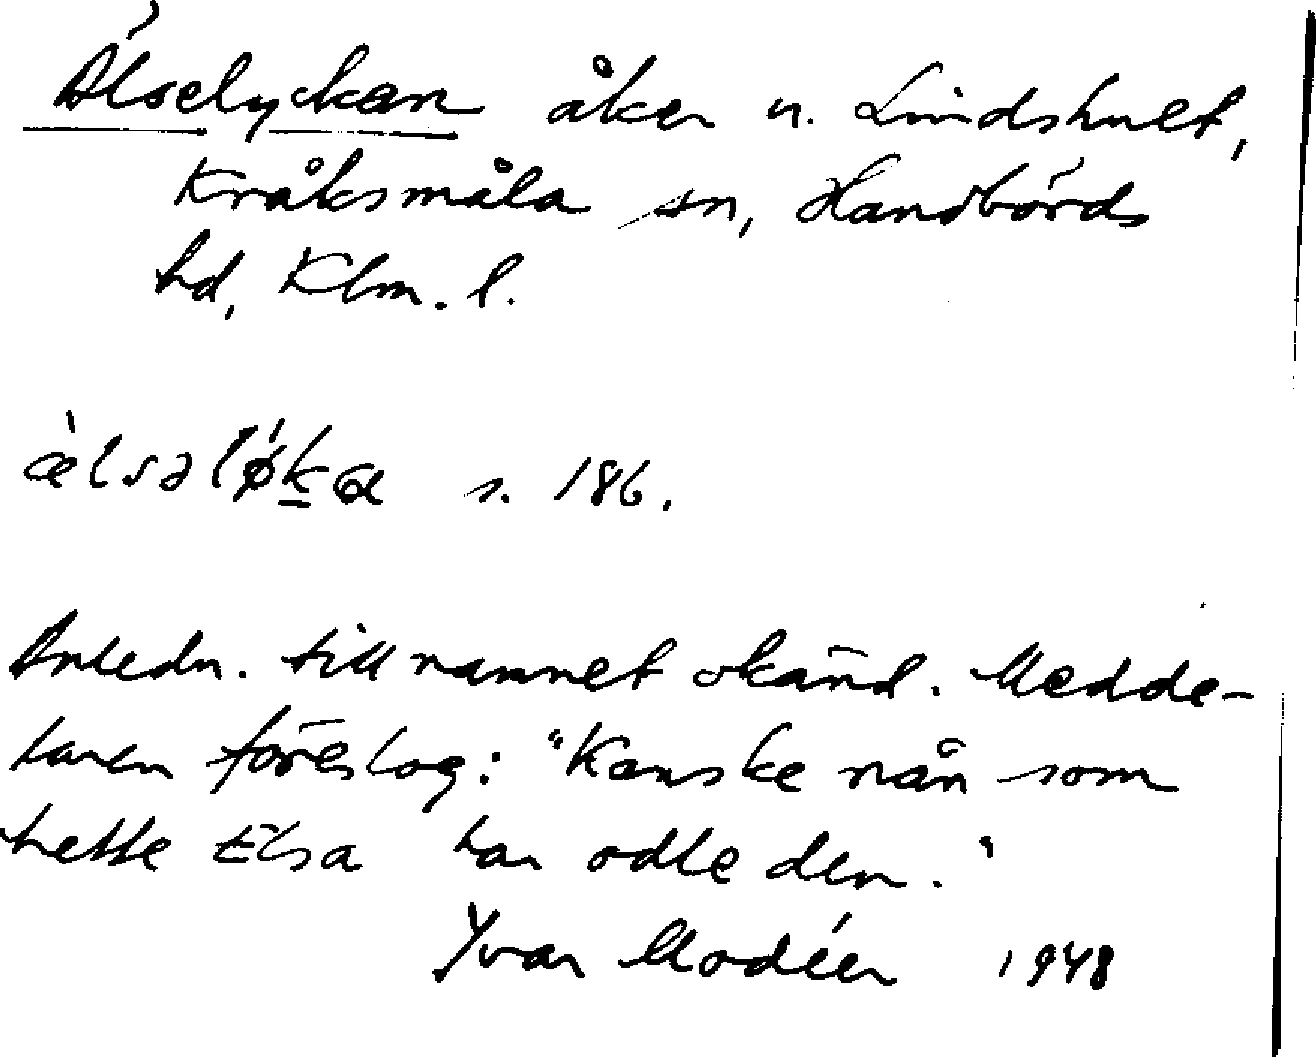 Älselyckan åker u. Lindshult,
Kråksmåla sn, Handbörds
hd, Klm. l.
s. 186.
Anledn. till namnet okänd. Medde-
laren föreslog: "Kanske nån som
hette Elsa har odle den."
Yvar Modéer 1948